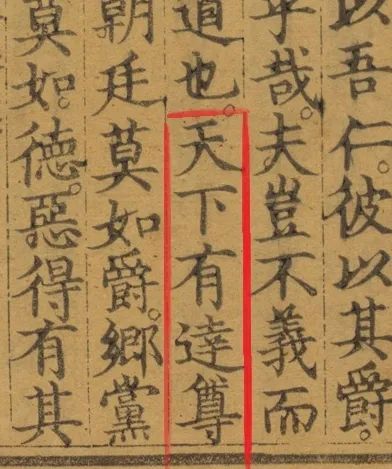 以吾仁。彼以其爵。
乎哉。夫豈不義而
道也。天下有達尊
朝廷莫如爵。鄉黨
莫如。德。惡得有其